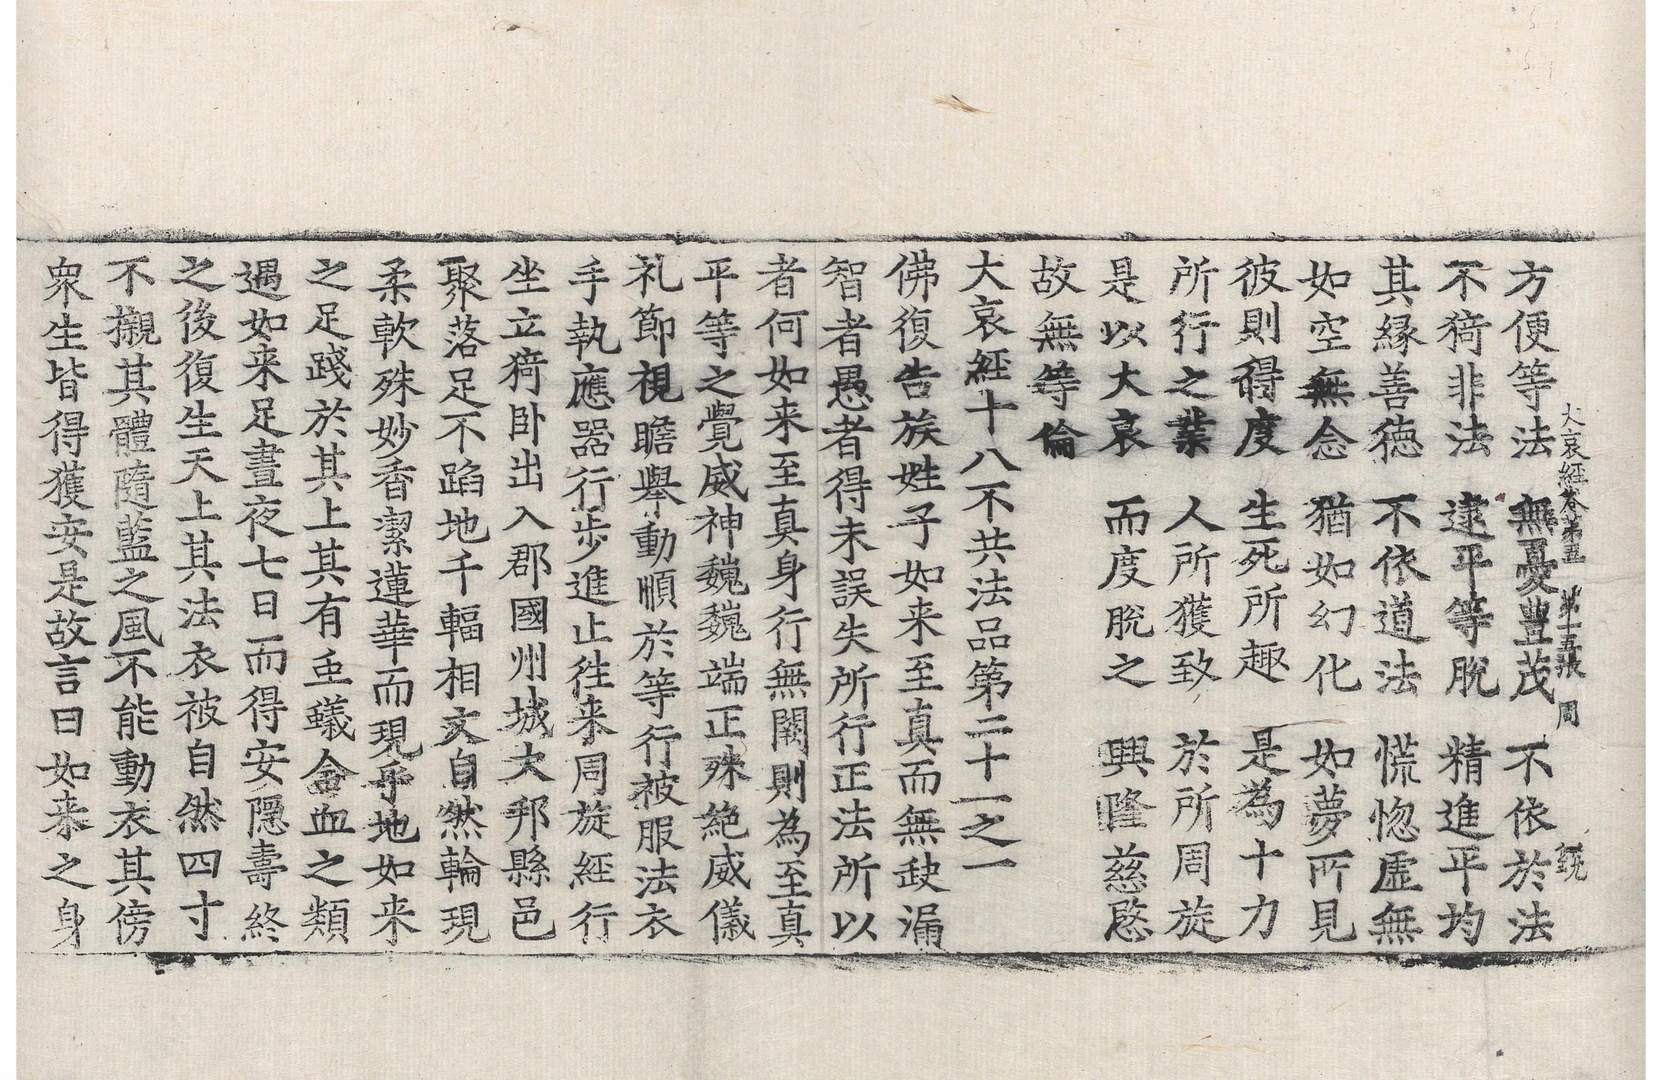 大哀經卷第五 第十五張 周
方便等法 無憂豊茂 不依於法
不猗非法 逮平等脫 精進平均
其縁善德 不依道法 慌惚虛無
如空無念 猶如幻化 如夢所見
彼則得度 生死所趣 是為十力
所行之業 人所獲致 於所周旋
是以大哀 而度脫之 興隆慈愍
故無等倫
大哀經十八不共法品第二十一之一
佛復告族姓子如来至真而無缺漏
智者愚者得未誤失所行正法所以
者何如来至真身行無闕則為至真
平等之覺威神巍巍端正殊絕威儀
礼節視瞻舉動順於等行被服法衣
手執應器行步進止徃来周旋經行
坐立猗卧出入郡國州城大邦縣邑
聚落足不蹈地千輻相文自然輪現
柔軟殊妙香潔蓮華而現乎地如来
之足踐於其上其有䖝蟻含血之類
遇如来足晝夜七日而得安隱壽終
之後復生天上其法衣被自然四寸
不襯其體隨藍之風不能動衣其傍
衆生皆得獲安是故言曰如来之身